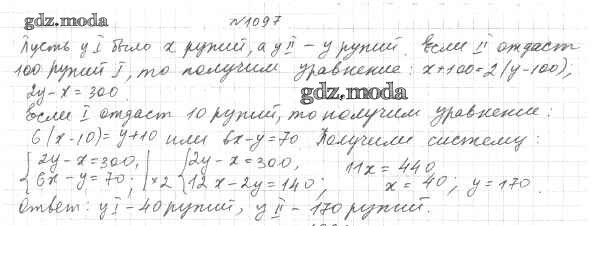 gdz.moda
№1097
Пусть у I было x рупий, а у II – y рупий. Если II отдаст
100 рупий I, то получим уравнение: x+100=2(y-100);
2y-x=300
gdz.moda
Если I отдаст 10 рупий, то получим уравнение:
6(x-10)=y+10 или 6x-y=70. Получили систему:
{ 2y-x=300, | { 2y-x=300, 11x=440
{ 6x-y=70; | ×2 { 12x-2y=140; x=40; y=170.
Ответ: у I – 40 рупий, у II – 170 рупий.